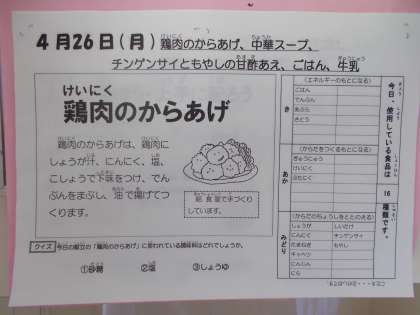 4月26日(月) 鶏肉のからあげ、中華スープ、
チンゲンサイともやしの甘酢あえ、ごはん、牛乳
けいにく
鶏肉のからあげ
鶏肉のからあげは、鶏肉に
しょうが汁、にんにく、塩、
こしょうで下味をつけ、でん
ぷんをまぶし、油で揚げてつ
くります。
給食室で手づくり
しています。
クイズ 今日の献立の「鶏肉のからあげ」に使われている調味料はどれでしょうか。
①砂糖 ②塩 ③しょうゆ
今日、使用している食品は
16
種類です。
き
(エネルギーのもとになる)
ごはん
でんぷん
あぶら
さとう
あか
(からだをつくるもとになる)
ぎゅうにゅう
けいにく
ぶたにく
みどり
(からだのちょうしをととのえる)
しょうが しいたけ
にんにく チンゲンサイ
たまねぎ もやし
キャベツ
にんじん
にら